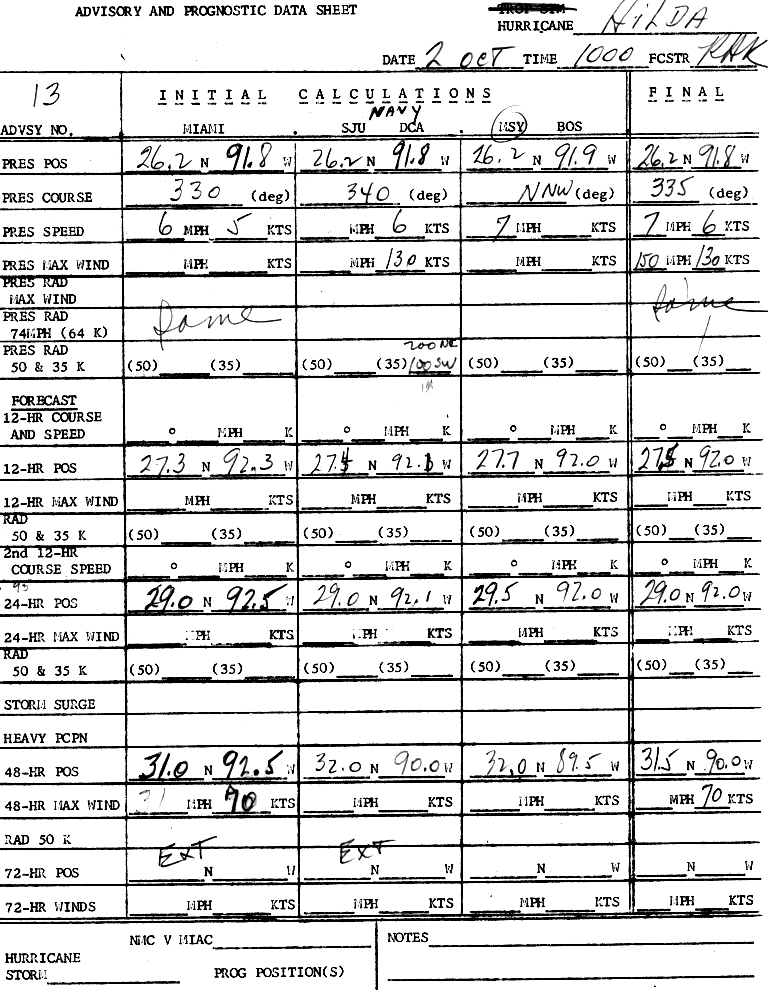 ADVISORY AND PROGNOSTIC DATA SHEET
HURRICANE HILDA
DATE 2 OCT TIME 1000 FCSTR RHK
13 INITIAL CALCULATIONS FINAL
NAVY
ADVSY NO. MIAMI . SJU DCA . MSY BOS
PRES POS 26.2 N 91.8 W 26.2 N 91.8 W 26.2 N 91.9 W 26.2 N 91.8 W
PRES COURSE 330 (deg) 340 (deg) NNW (deg) 335 (deg)
PRES SPEED 6 MPH 5 KTS MPH 6 KTS 7 MPH KTS 7 MPH 6 KTS
PRES MAX WIND MPH KTS MPH 130 KTS MPH KTS 150 MPH 130 KTS
PRES RAD
MAX WIND
PRES RAD
74MPH (64 K) Same Same
PRES RAD 200 NE
50 & 35 K (50) (35) (50) (35) 100 SW (50) (35) (50) (35)
FORECAST
12-HR COURSE
AND SPEED ° MPH K ° MPH K ° MPH K ° MPH K
12-HR POS 27.3 N 92.3 W 27. N 92. W 27.7 N 92.0 W 27. N 92.0 W
12-HR MAX WIND MPH KTS MPH KTS MPH KTS MPH KTS
RAD
50 & 35 K (50) (35) (50) (35) (50) (35) (50) (35)
2nd 12-HR
COURSE SPEED ° MPH K ° MPH K ° MPH K ° MPH K
24-HR POS 29.0 N 92.5 W 29.0 N 92.1 W 29.5 N 92.0 W 29.0 N 92.0 W
24-HR MAX WIND MPH KTS MPH KTS MPH KTS MPH KTS
RAD
50 & 35 K (50) (35) (50) (35) (50) (35) (50) (35)
STORM SURGE
HEAVY PCPN
48-HR POS 31.0 N 92.5 W 32.0 N 90.0 W 32.0 N 89.5 W 31.5 N 90.0 W
48-HR MAX WIND MPH 70 KTS MPH KTS MPH KTS MPH 70 KTS
RAD 50 K
EXT EXT
72-HR POS N W N W N W N W
72-HR WINDS MPH KTS MPH KTS MPH KTS MPH KTS
NMC V MIAC NOTES
HURRICANE
STORM PROG POSITION(S)